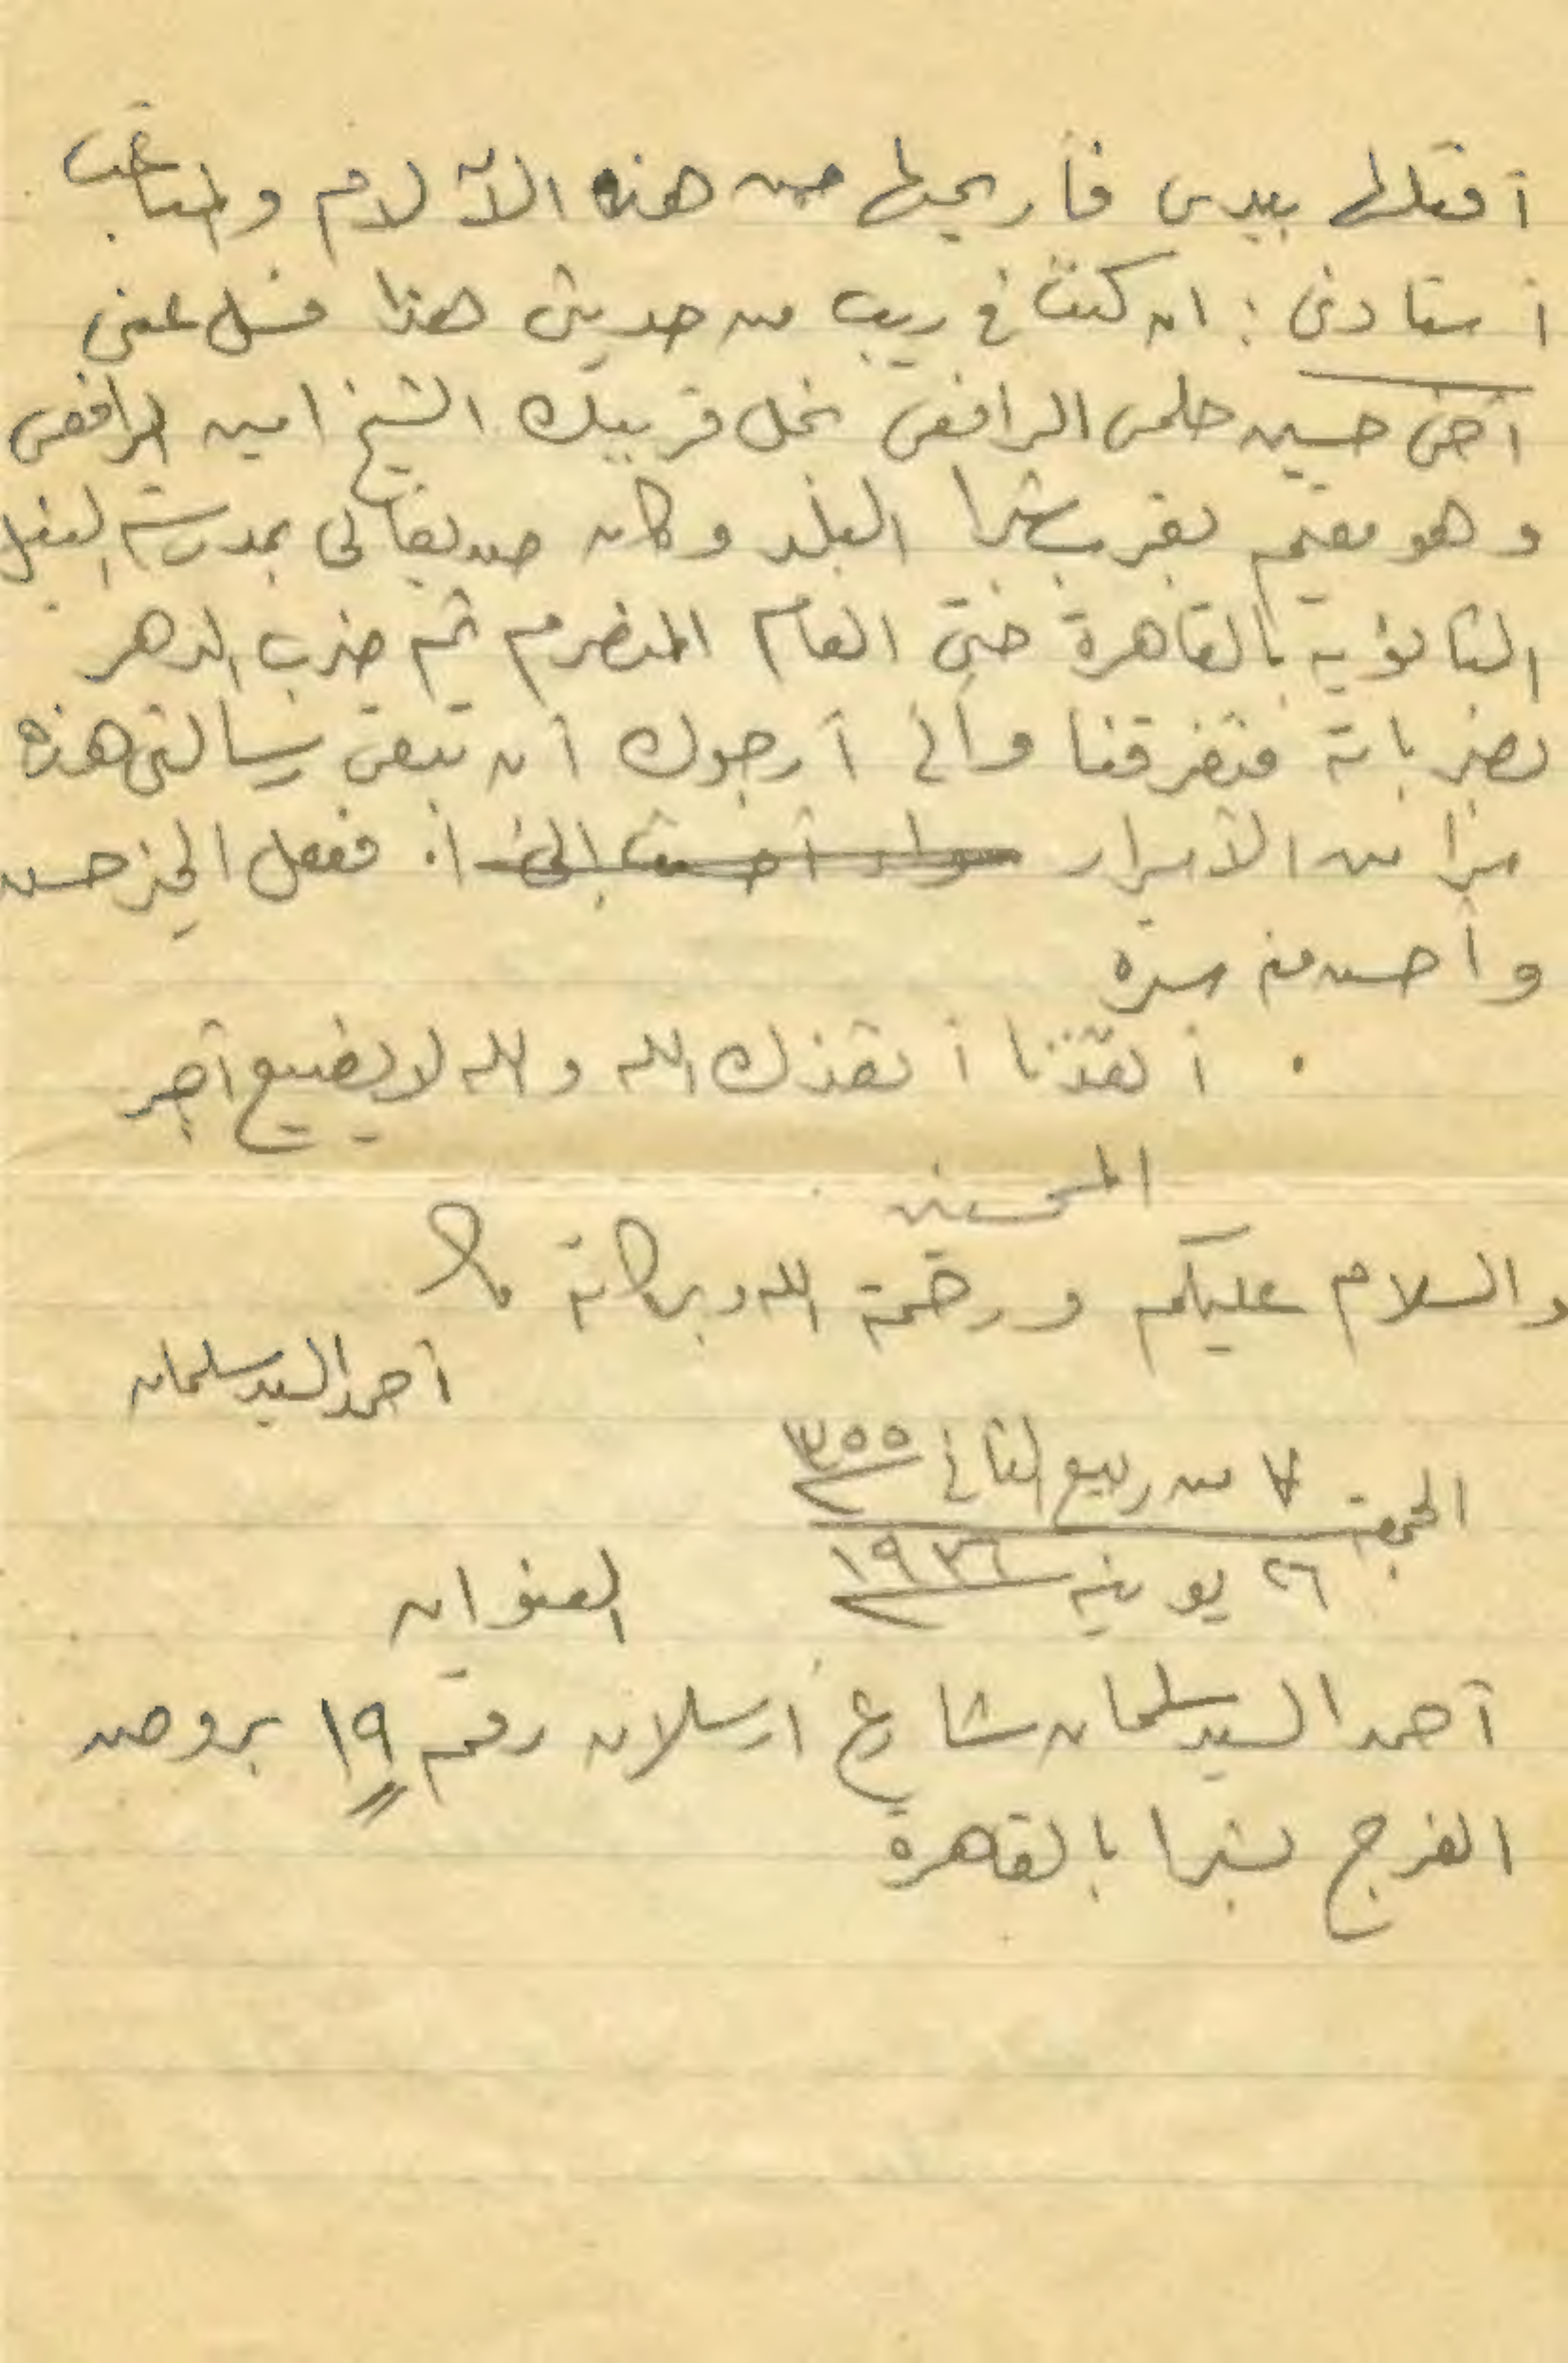 أقتلها بيدى فأريحها من هذه الآلام والمتاعب
أستاذى : ان كنت فى ريب من حديثى هذا فسل عنى
أخى حسين حلمى الرافعى نجل قريبك الشيخ امين الرافعى
وهو مقيم بقرب شبرا البلد وكان صديقا لى بمدرسة النيل
الثانوية بالقاهرة حتى العام المنصرم ثم ضرب الدهر
بضرباته فتفرقنا وانى أرجوك أن تبقى رسالتى هذه
سرا من الأسرار سواء أحسنت إلى ففعل الخير حسن
وأحسن منه سره
. أنقذنا أنقذك الله والله لا يضيع أجر
المحسنين
والسلام عليكم ورحمة الله وبركاته
أحمد السيد سلمان
الجمعة ٧ من ربيع الثانى ١٣٥٥
٢٦ يونيه ١٩٣٦
العنوان
أحمد السيد سلمان شارع ارسلان رقم ١٩ بروض
الفرج بشبرا بالقاهرة